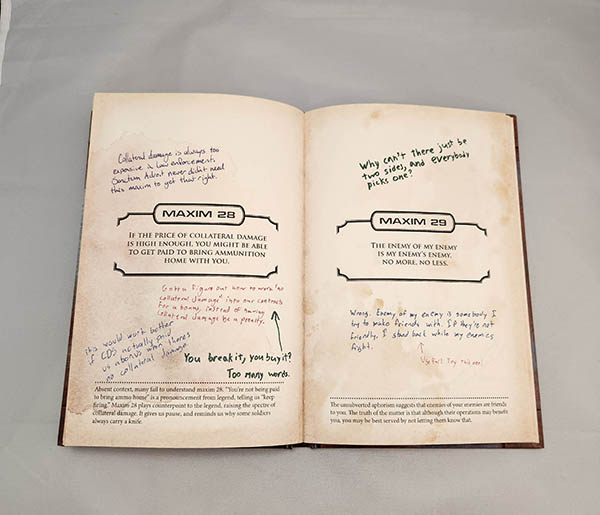 Collateral damage is always too
expensive in law enforcement.
Sanctum Adroit never didn't need
this maxim to get that right.
MAXIM 28
IF THE PRICE OF COLLATERAL DAMAGE
IS HIGH ENOUGH, YOU MIGHT BE ABLE
TO GET PAID TO BRING AMMUNITION
HOME WITH YOU.
Gotta figure out how to work "no
collateral damage" into our contracts
for a bonus, instead of having
collateral damage be a penalty.
It would work better
if CDS actually paid
us a bonus when there's
no collateral damage
You break it, you buy it?
Too many words.
Absent context, many fail to understand maxim 28. "You're not being paid
to bring ammo home" is a pronouncement from legend, telling us "keep
firing." Maxim 28 plays counterpoint to the legend, raising the spectre of
collateral damage. It gives us pause, and reminds us why some soldiers
always carry a knife.
Why can't there just be
two sides, and everybody
picks one?
MAXIM 29
THE ENEMY OF MY ENEMY
IS MY ENEMY'S ENEMY.
NO MORE, NO LESS.
Wrong. Enemy of my enemy is somebody I
try to make friends with. If they're not
friendly, I stand back while my enemies
fight.
Useful. Try this
The unsubverted aphorism suggests that enemies of your enemies are friends
to you. The truth of the matter is that although their operations may benefit
you, you may be best served by not letting them know that.